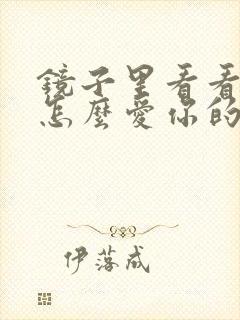 镜子里看看
怎麼愛你的
伊落成